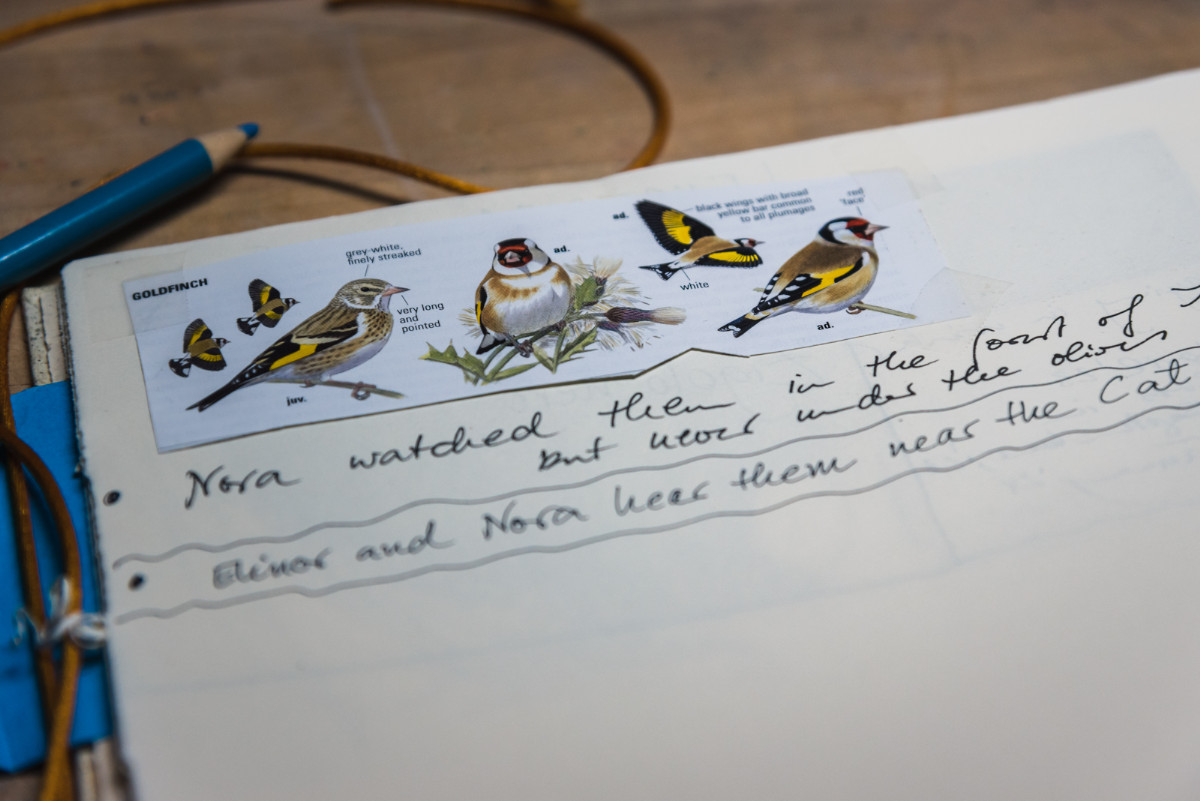 GOLDFINCH
grey-white,
finely streaked
very long
and
pointed
juv.
ad.
ad.
black wings with broad
yellow bar common
to all plumages
white
red
'face'
ad.
• Nora watched them in the forst of
but never under the olives
• Elinor and Nora hear them near the Cat